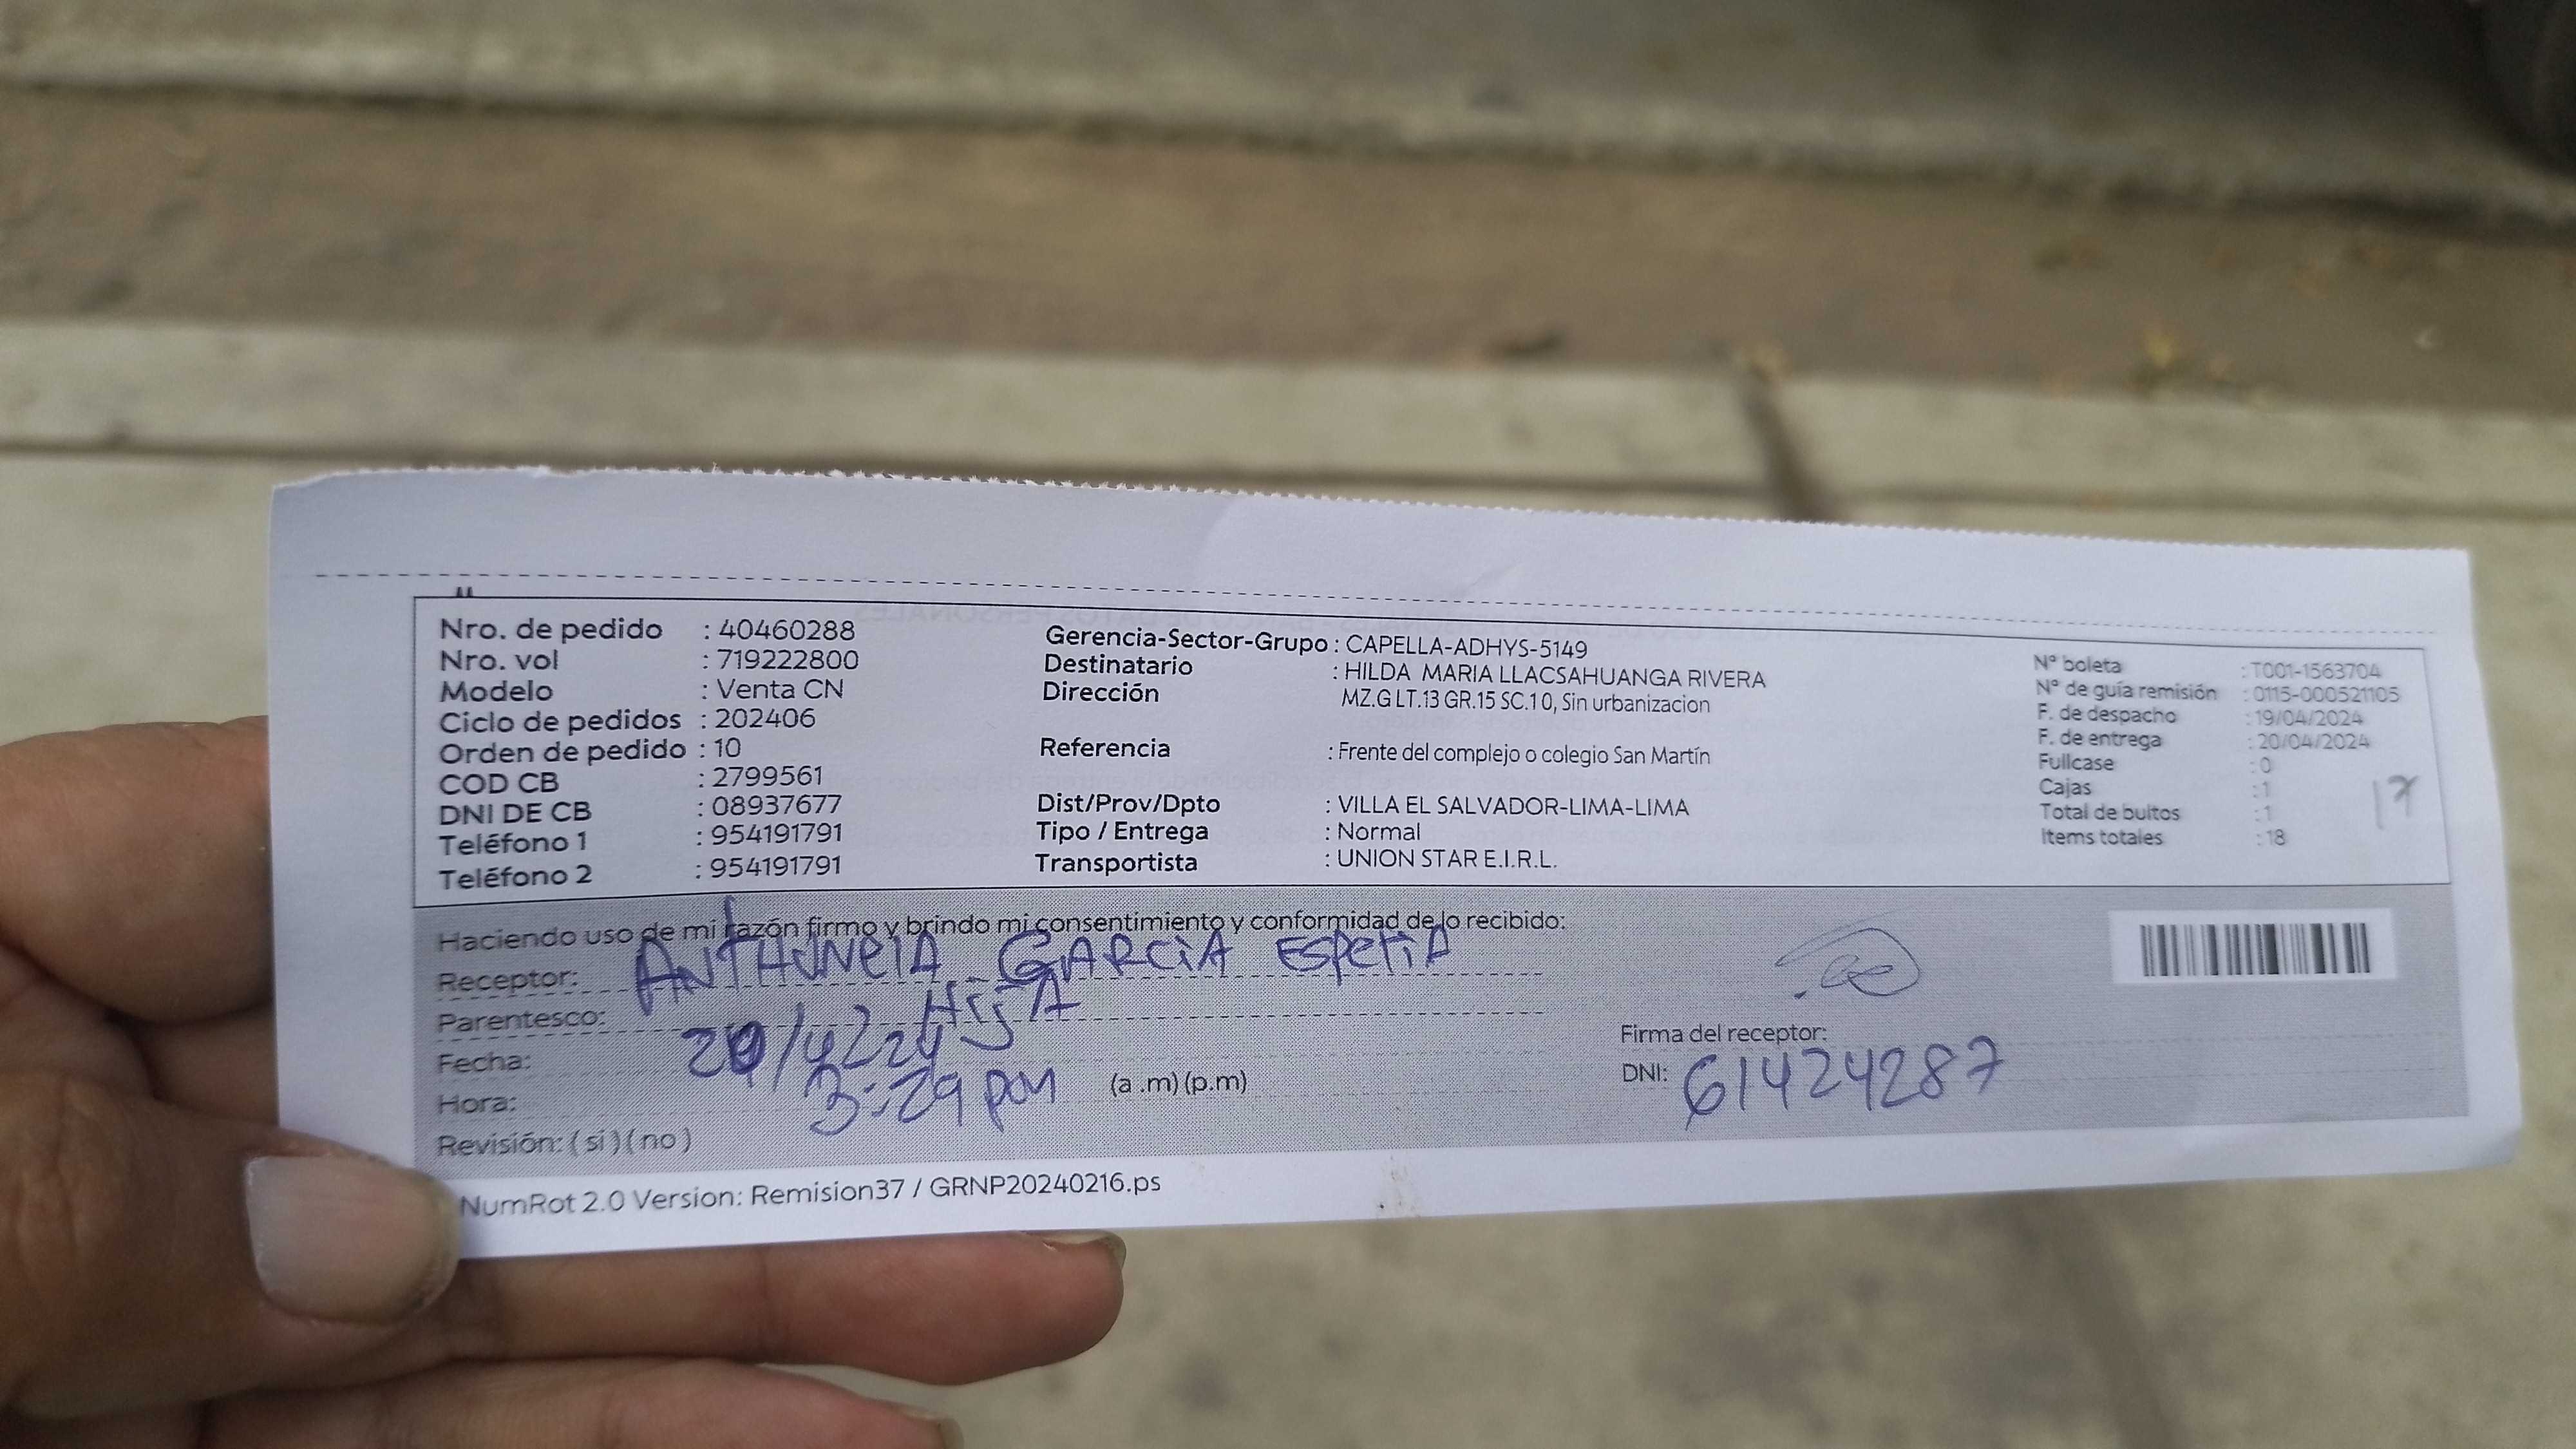 Nro. de pedido : 40460288
Nro. vol : 719222800
Modelo : Venta CN
Ciclo de pedidos : 202406
Orden de pedido : 10
COD CB : 2799561
DNI DE CB : 08937677
Teléfono 1 : 954191791
Teléfono 2 : 954191791
Gerencia-Sector-Grupo : CAPELLA-ADHYS-5149
Destinatario : HILDA MARIA LLACSAHUANGA RIVERA
Dirección MZ.G LT.13 GR.15 SC.10, Sin urbanizacion
Referencia : Frente del complejo o colegio San Martín
Dist/Prov/Dpto : VILLA EL SALVADOR-LIMA-LIMA
Tipo / Entrega : Normal
Transportista : UNION STAR E.I.R.L.
N° boleta : T001-1563704
N° de guía remisión : 0115-000521105
F. de despacho : 19/04/2024
F. de entrega : 20/04/2024
Fullcase : 0
Cajas : 1
Total de bultos : 1
Items totales : 18
17
Haciendo uso de mi razón firmo y brindo mi consentimiento y conformidad de lo recibido:
Receptor: GARCIA
Parentesco: HijA
Fecha:
Hora: 3:29 pm (a .m) (p.m)
Revisión: ( si ) ( no )
Firma del receptor:
DNI: 61424287
NumRot 2.0 Version: Remision37 / GRNP20240216.ps